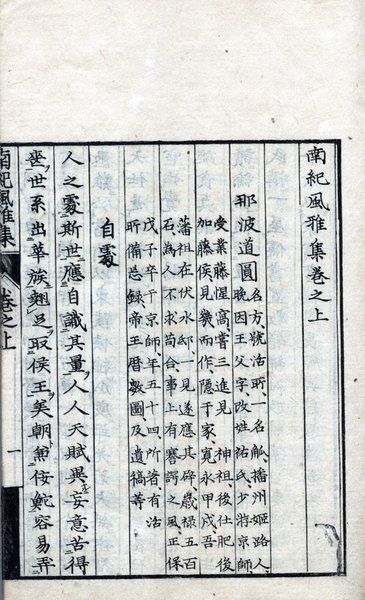 南紀風雅集卷之上
那波道圓 名方、號活所、一名觚、播州姬路人、
晚因王父字、改姓祐氏、少游京師、
受業藤惺窩、嘗三進見 神祖、後仕肥後
加藤侯見幾而作隱于家、寬永甲戌、吾
藩祖在伏水邸、一見遂應其辟、歲祿五百
石、為人不求苟合、事上有謇諤之風、正保
戊子卒于京師、年五十四、所著有活
所備忘錄、帝王曆數圖、及遺稿等
自處
人之處斯世、應自識其量、人人天賦異、妄意苦得
喪、世系出華族、翹足取侯王、矣朝魚佞鮀容易弄
南紀風雅集 卷之上 一